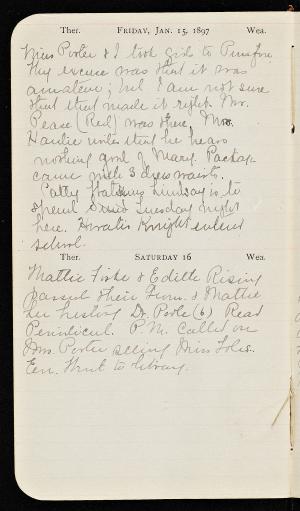 Ther. FRIDAY, JAN. 15, 1897 Wea.
Miss Porter & I took girls to
My excuse was that it was
amateur; but I am not sure
that that made it right. Mr.
Pease (Red) was there. Mrs.
writes that he hears
nothing good of Mary. Package
came with 3 dress waists.
Lindsay is to
spend Tuesday night
here. Horatio Knight enters
school.
Ther. SATURDAY 16 Wea.
Mattie Fiske & Edith Rising
passed their & Mattie
her history Dr. Poole (6) Read
Periodical. P.M. Called on
Mrs. Porter seeing Miss
Eve. Went to library.